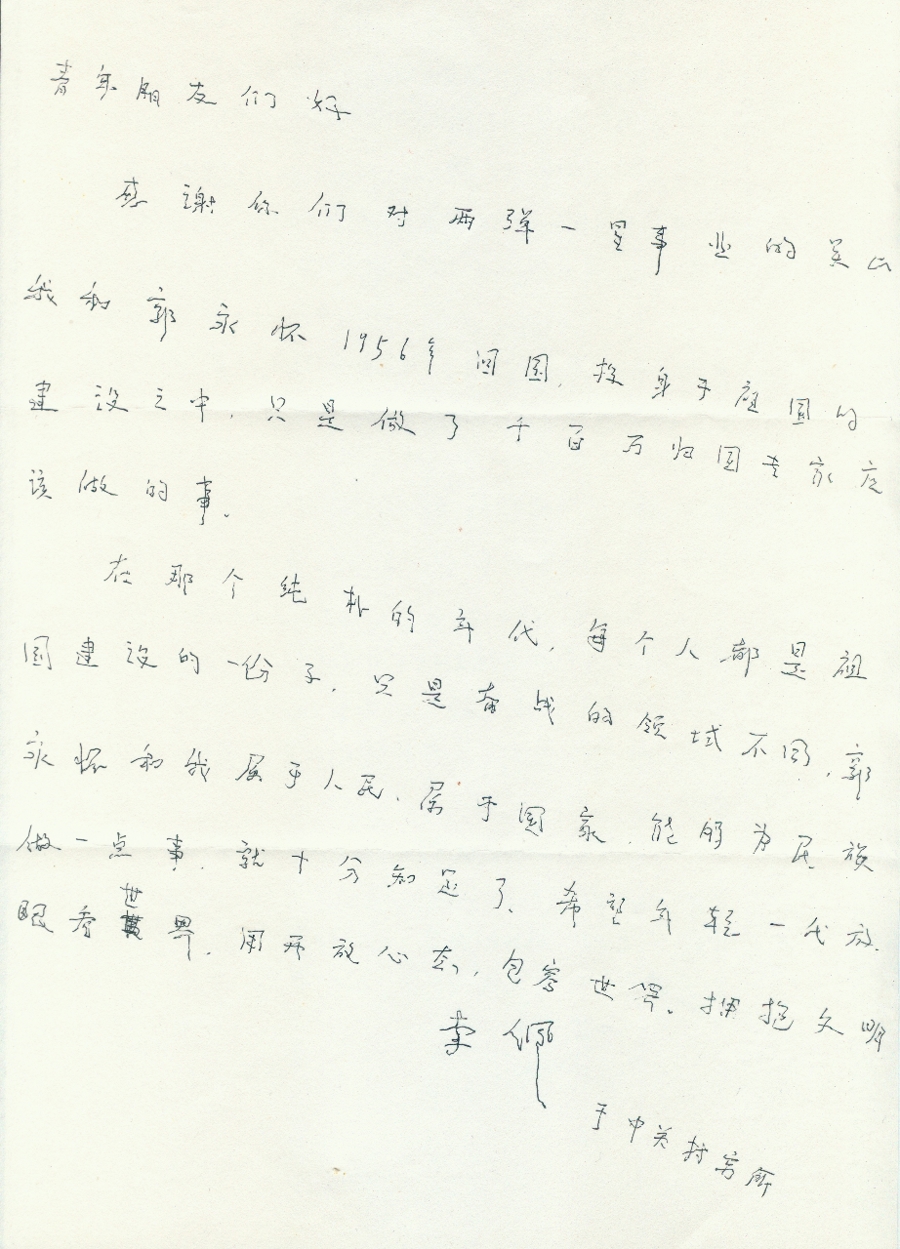 青年朋友们好
感谢你们对两弹一星事业的关心
我和郭永怀1956年回国，投身于祖国的
建设之中，只是做了千百万归国专家应
该做的事。
在那个纯朴的年代，每个人都是祖
国建设的一份子，只是奋战的领域不同，郭
永怀和我属于人民、属于国家，能够为民族
做一点事，就十分知足了、希望年轻一代放
眼看世界，用开放心态，包容世界。拥抱文明
李佩
于中关村寓所